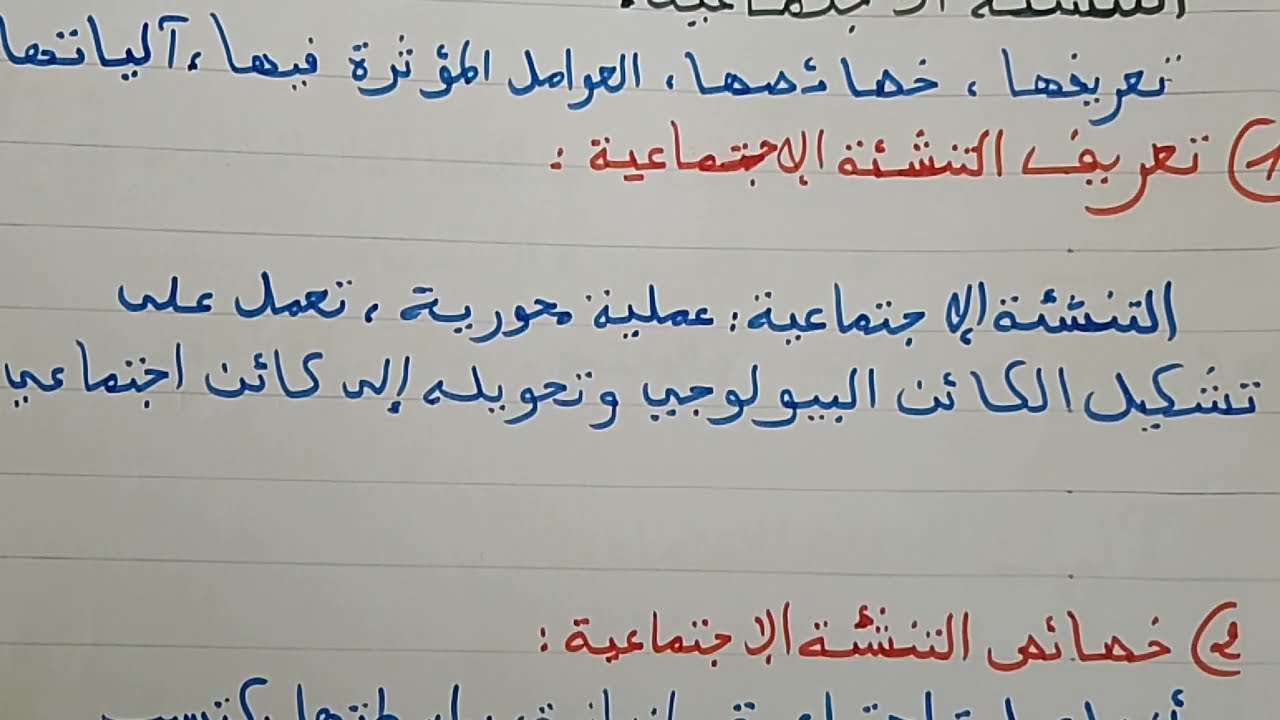 التنشئة الاجتماعية:
تعريفها، خصائصها، العوامل المؤثرة فيها، آلياتها
1) تعريف التنشئة الإجتماعية:
التنشئة الإجتماعية: عملية محورية، تعمل على
تشكيل الكائن البيولوجي وتحويله إلى كائن اجتماعي
2) خصائص التنشئة الإجتماعية: